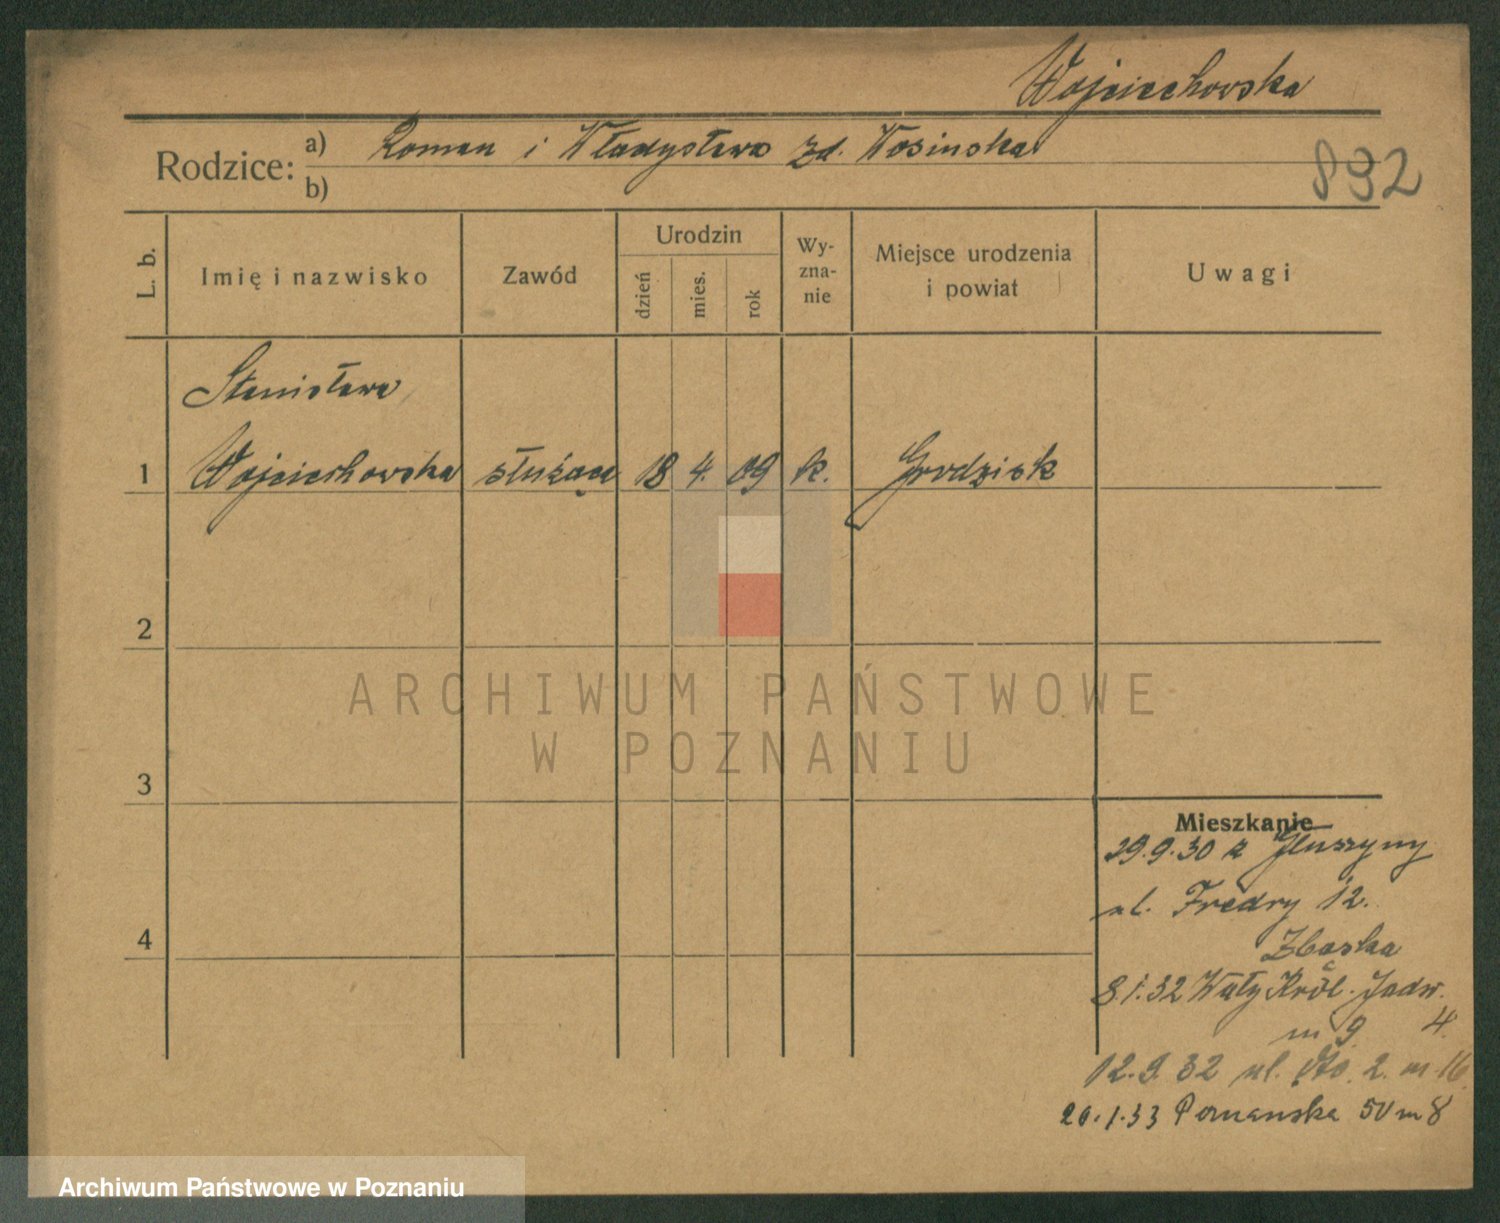 Wojciechowska
Rodzice:
a) Roman i Władysława zd. Wosinska
b)
892
L. b.
Imię i nazwisko
Zawód
Urodzin
dzień
mies.
rok
Wy-
zna-
nie
Miejsce urodzenia
i powiat
Uwagi
Stanisława
1 Wojciechowska służąca 18 4. 09 k. Grodzisk
2
ARCHIWUM PAŃSTWOWE
W POZNANIU
3
Mieszkanie
29.9.30 z Głuszyny
ul. Fredry 12.
4
8.1.32 Wały Król. Jadw.
m 9 4.
12.9.32 ul. 2. m 16
20.1.33 Poznanska 50 m 8
Archiwum Państwowe w Poznaniu